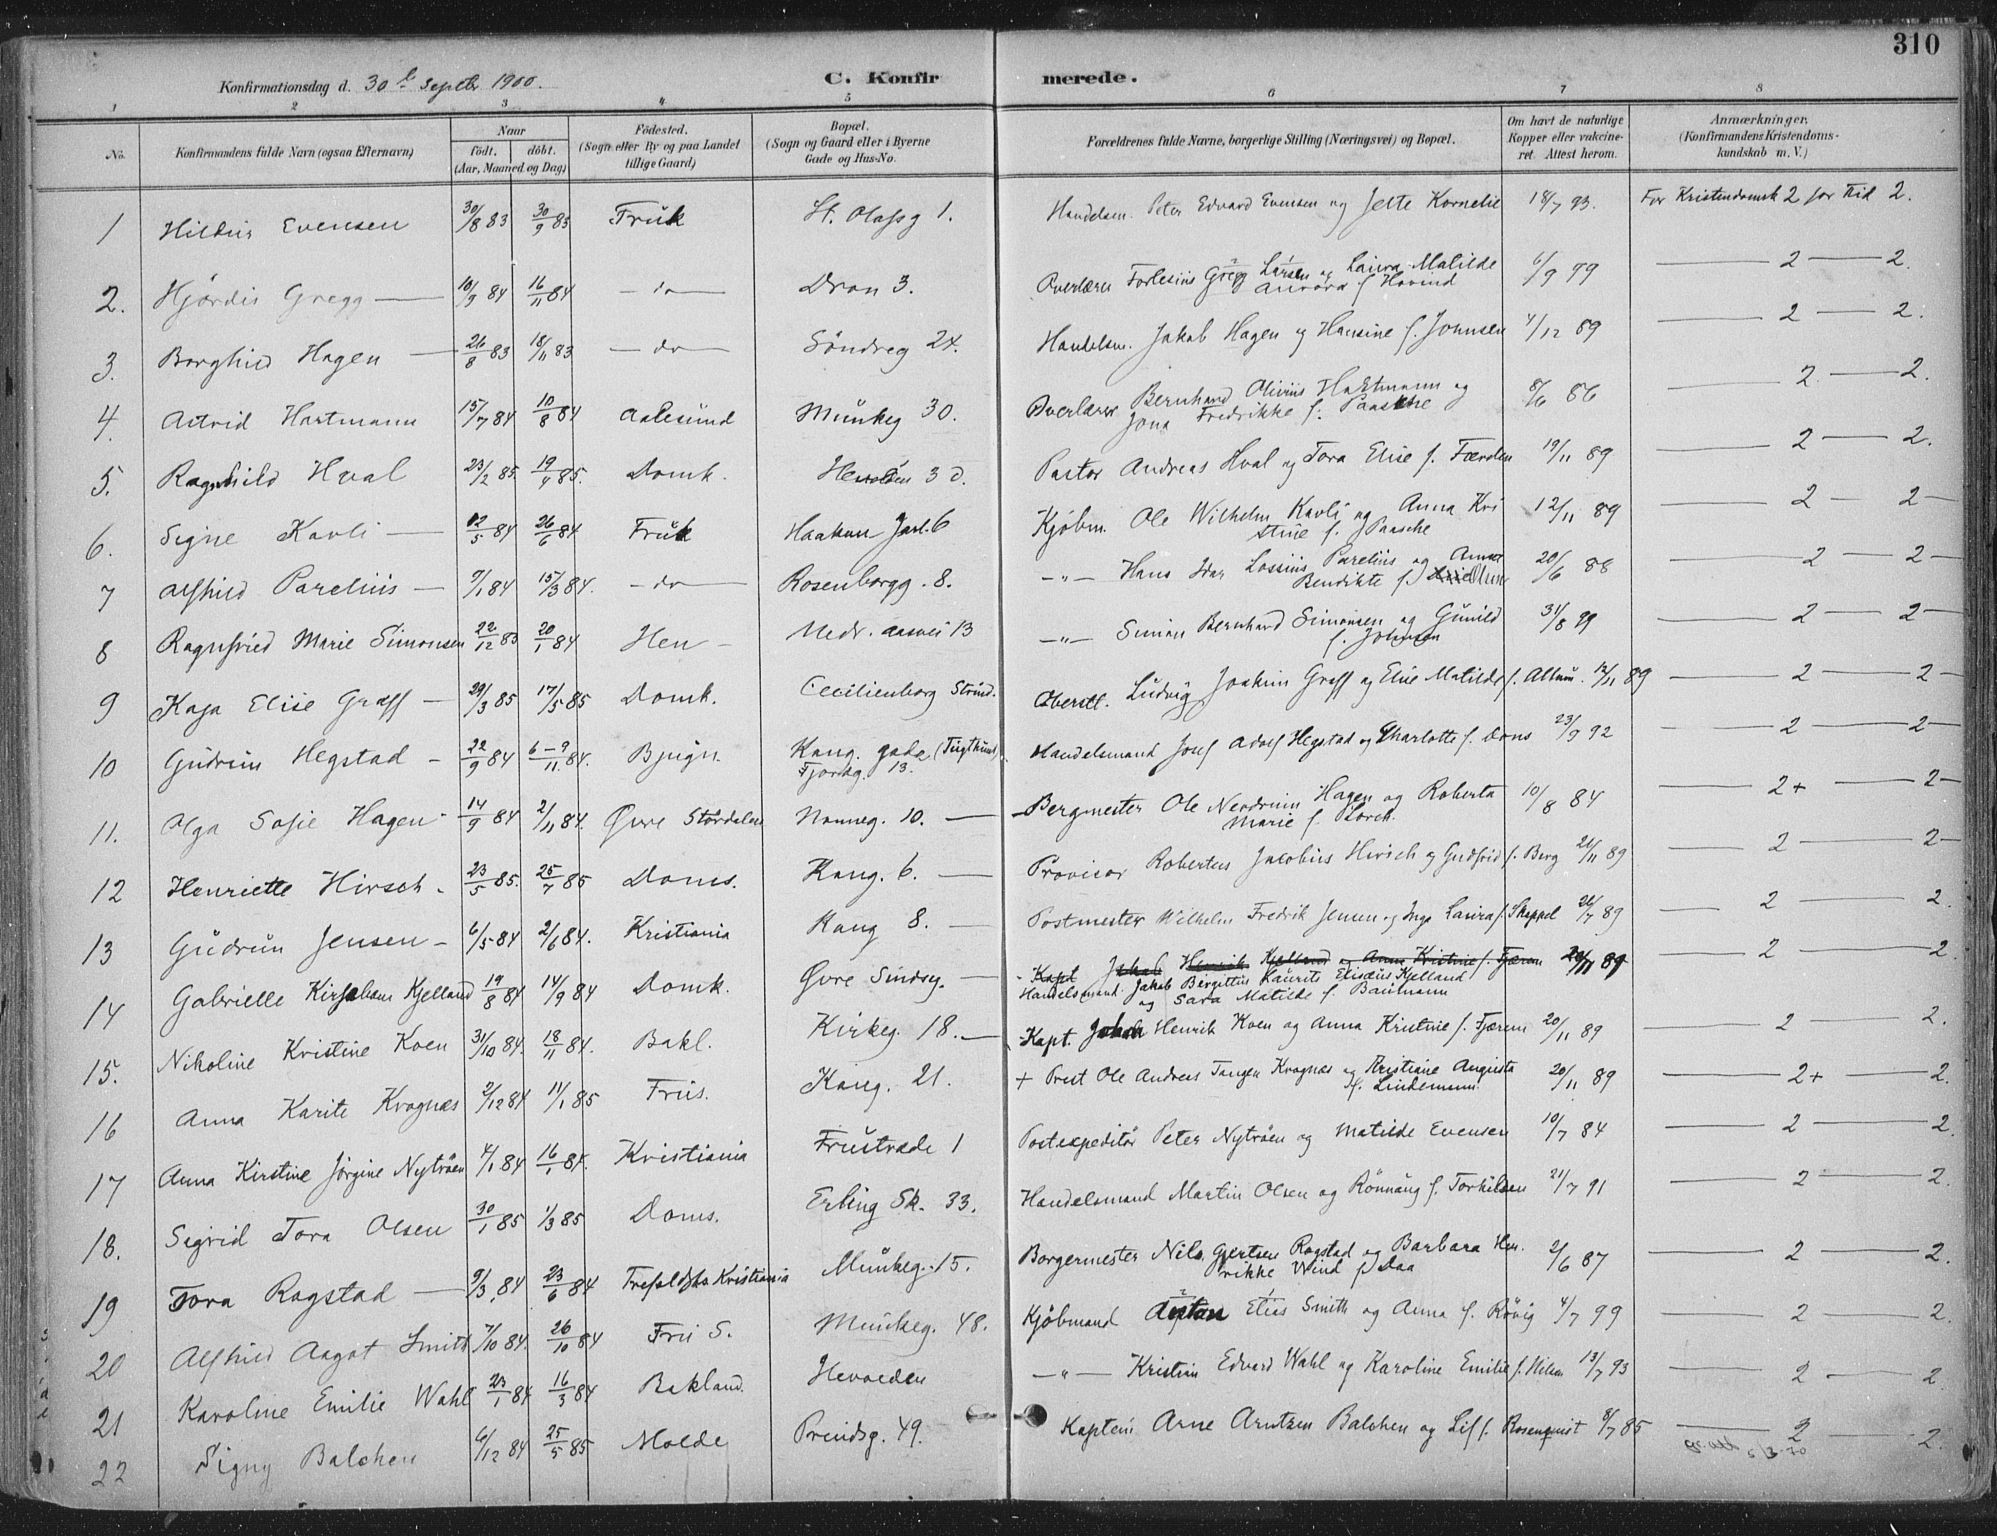 310
Konfirmationsdag d. 30 Septbr 1900.
C. Konfirmerede.
1 2 3 4 5 6 7 8
No. Konfirmandens fulde Navn (ogsaa Efternavn) Naar født, døbt. (Aar, Maaned og Dag) Fødested. (Sogn eller By og paa Landet tillige Gaard) Bopæl. (Sogn og Gaard eller i Byerne Gade og Hus-No. Forældrenes fulde Navne, borgerlige Stilling (Næringsvei) og Bopæl. Om havt de naturlige Kopper eller vaccineret. Attest herom. Anmærkninger. (Konfirmandens Kristendomskundskab m. V.)
1 Hildur Evensen 30/8 83 30/9 83 Fruk St. Olafsg 1. Handelsm. Peter Edvard Evensen og Jette Kornelie 18/7 93. For Kristendomsk 2 for Flid 2.
2. Hjørdis Gregg — 10/9 84 16/11 84 — do — Dron 3. Overlærer Gregg Larsen og Laura Matilde Aurora f. Hovind 6/9 99 — 2 — 2.
3. Borghild Hagen — 26/8 83 18/11 83 — do — Søndreg 24. Handelsm. Jakob Hagen og Hansine f. Johnsen 4/12 89 — 2 — 2.
4. Astrid Hartmann 15/7 84 10/8 84 Aalesund Munkeg 30. Overlærer Bernhard Olivius Hartmann og Jona Fredrikke f. Paasche 8/6 86 — 2 — 2.
5. Ragnhild Hval 23/2 85. 19/4 85. Domk. 3 d. Pastor Andreas Hval og Tora Elise f. Færden 19/11 89 — 2 — 2.
6. Signe Kavli — 12/5 84 26/6 84 Fruk Haakon Jarl. 6 Kjøbm. Ole Wilhelm Kavli og Anna Kristine f. Paasche 12/11 89 — 2 — 2 —
7 Alfhild Parelius — 9/1 84 15/3 84. — do — Rosenborgg. 8. —"— Hans Idar Lossius Parelius og Anna Bendikte f. 20/6 88 — 2 — 2 —
8 Ragnfried Marie Simonsen 22/12 83 20/1 84 Hen — Nedr. aasvei 13 —"— Simon Bernhard Simonsen og Gunild f. Johnsen 31/8 99 — 2 — 2 —
9 Kaja Elise Graff — 29/3 85 17/5 85 Domk. Cecilienborg Strind. Oberstl. Ludvig Joakim Graff og Elise Matilde f. Altum. 12/11 89 — 2 — 2 —
10 Gudrun Hegstad — 22/9 84 6-9/11. 84. Bjugn. Kong. gade (Tugthuset) Fjordg. 13. Handelsmand Josef Adolf Hegstad og Charlotte f. Dons 23/9 92 — 2 — 2 —
11. Olga Sofie Hagen 14/9 84 2/11 84. Øvre Stördalen Nonneg. 10. — Bergmester Ole Neodrium Hagen og Roberta Marie f. Lorck. 10/8 84 — 2+ — 2 —
12 Henriette Hirsch. 23/5 85. 25/7 85 Doms. Kong. 6. — Provisor Robertus Jacobus Hirsch og Gudfrid f. Berg 21/11 89 — 2 — 2 —
13 Gudrun Jensen — 6/5 84 2/6 84. Kristiania Kong 8. — Postmester Wilhelm Fredrik Jensen og Inga Laura f. Skeppel 26/7 89 — 2 — 2.
14 Gabrielle Kjelland 19/8 84 14/9 84 Domk. Øvre Sindreg. Kapt Jakob Henrik Kjelland og Anna Kristine f. Fjærem 20/11 89 — 2 — 2.
Handelsmand Jakob Birgithus Laurits Eliseus Kjelland og Sara Matilde f. Baumann
15. Nikoline Kristine Koen 31/10 84. 18/11 84. Bakl. Kirkeg. 18. — Kapt. Johan Henrik Koen og Anna Kristine f. Fjærem 20/11 89 — 2 — 2.
16 Anna Karite Krognæs 2/12 84 11/1 85 Frus. Kong. 21. + Prest Ole Andreas Tangen Krognæs og Kristiane Augusta f. Lindemann. 20/11 89 — 2+ — 2.
17 Anna Kirstine Jørgine Nytrøen 4/1 84 16/1 84. Kristiania Frustrade 1 Postexpeditör Peter Nytrøen og Matilde Evensen 10/7 84 — 2 — 2.
18. Sigrid Tora Olsen 30/1 85 1/3 85 Doms. Erling Sk. 33. Handelsmand Martin Olsen og Rönnaug f. Torkildsen 21/7 91 — 2 — 2.
19 Tora Rogstad — 9/3. 84 23/6 84 Trefoldghs. Kristiania Munkeg. 15. Borgermester Nils Gjertsen Rogstad og Barbara Henrikke Wind f. Daa 2/6 87 — 2 — 2.
20 Alfhild Aagot Smith 7/10 84. 26/10 84 Fru S. Munkeg. 48. Kjøbmand Anton Elias Smith og Anna f. Røvig 4/7 99 — 2 — 2.
21 Karoline Emilie Wahl 23/1 84 16/3 84 Bakland. Hevolden —"— Kristian Edvard Wahl og Karoline Emilie f. Nilsen 13/7 93 — 2 — 2
22 Signy Balchen 6/12 84 25/5 85 Molde Prindsg. 49. Kaptein Arne Arntzen Balchen og Lif f. Rosenqvist 8/7 85 — 2 — 2.